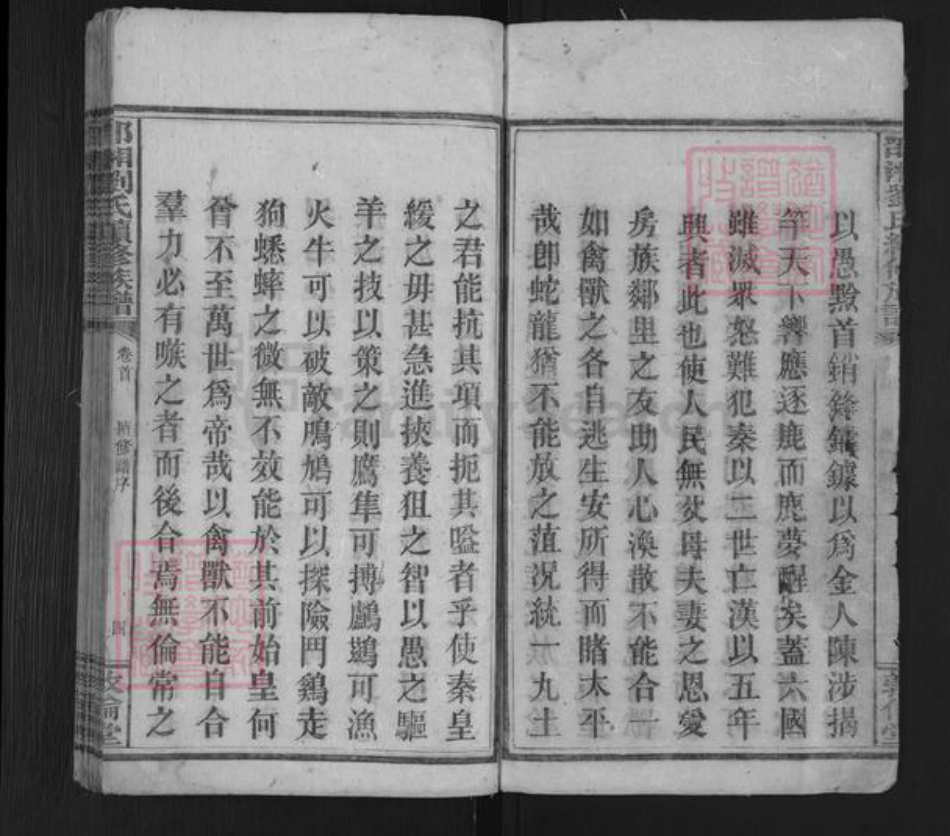 以愚黔首銷鋒鑄鐻以爲金人陳涉揭
竿天下響應逐鹿而鹿夢醒矣蓋六國
雖滅眾怒難犯秦以二世亡漢以五年
興者此也使人民無父母夫妻之恩愛
房族鄰里之友助人心渙散不能合一
如禽獸之各自逃生安所得而睹太平
哉卽蛇龍猶不能放之菹況統一九土
之君能抗其項而扼其嗌者乎使秦皇
緩之毋甚急進挾養狙之智以愚之驅
羊之技以策之則鷹隼可搏鸕鷀可漁
火牛可以破敵鴆可以探險鬥鷄走
狗蟋蟀之微無不效能於其前始皇何
嘗不至萬世爲帝哉以禽獸不能自合
羣力必有嗾之者而後合焉無倫常之
劉氏續修族譜
卷首
續修譜序
敦倫堂